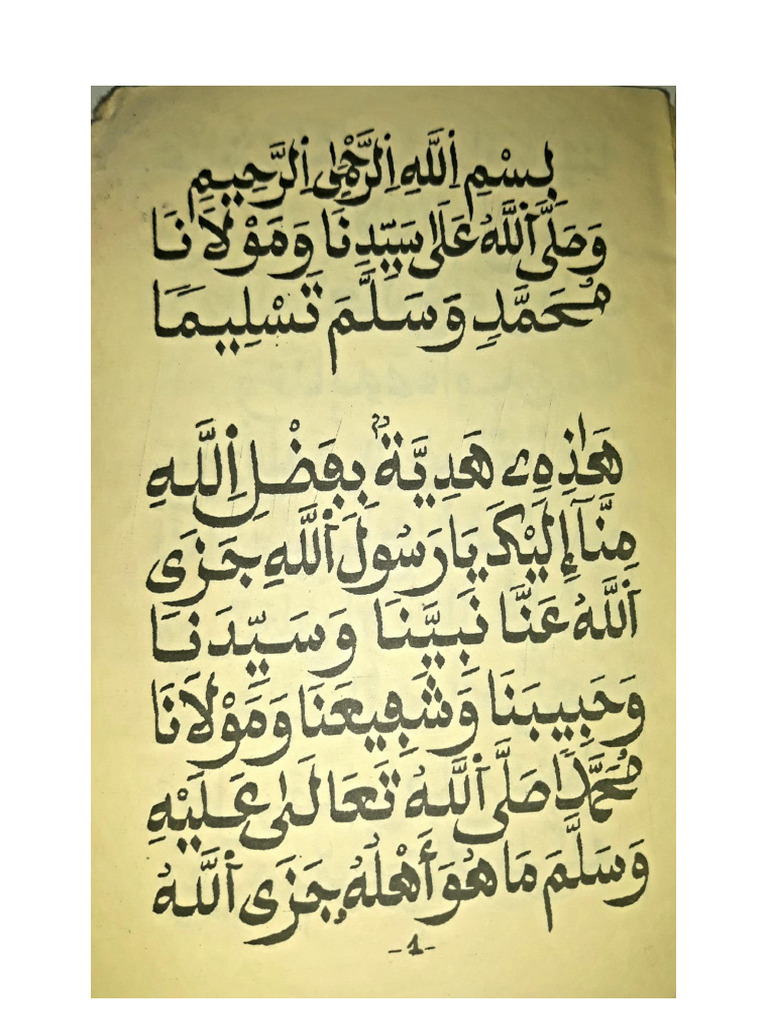 بِسْمِ اِللَّهِ اِلرَّحْمٰنِ اِلرَّحِيمِ
وَصَلَّى اَللَّهُ عَلَىٰ سَيِّدِنَا وَمَوْلَانَا
مُحَمَّدٍ وَسَلَّمَ تَسْلِيمًا
هَٰذِهِۦ هَدِيَّةٌ بِفَضْلِ اِللَّهِ
مِنَّآ إِلَيْكَ يَا رَسُولَ اَللَّهِ جَزَى
اَللَّهُ عَنَّا نَبِيَّنَا وَسَيِّدَنَا
وَحَبِيبَنَا وَشَفِيعَنَا وَمَوْلَانَا
مُحَمَّدًا صَلَّى اَللَّهُ تَعَالَىٰ عَلَيْهِ
وَسَلَّمَ مَا هُوَ أَهْلُهُۥ جَزَى اَللَّهُ
-1-